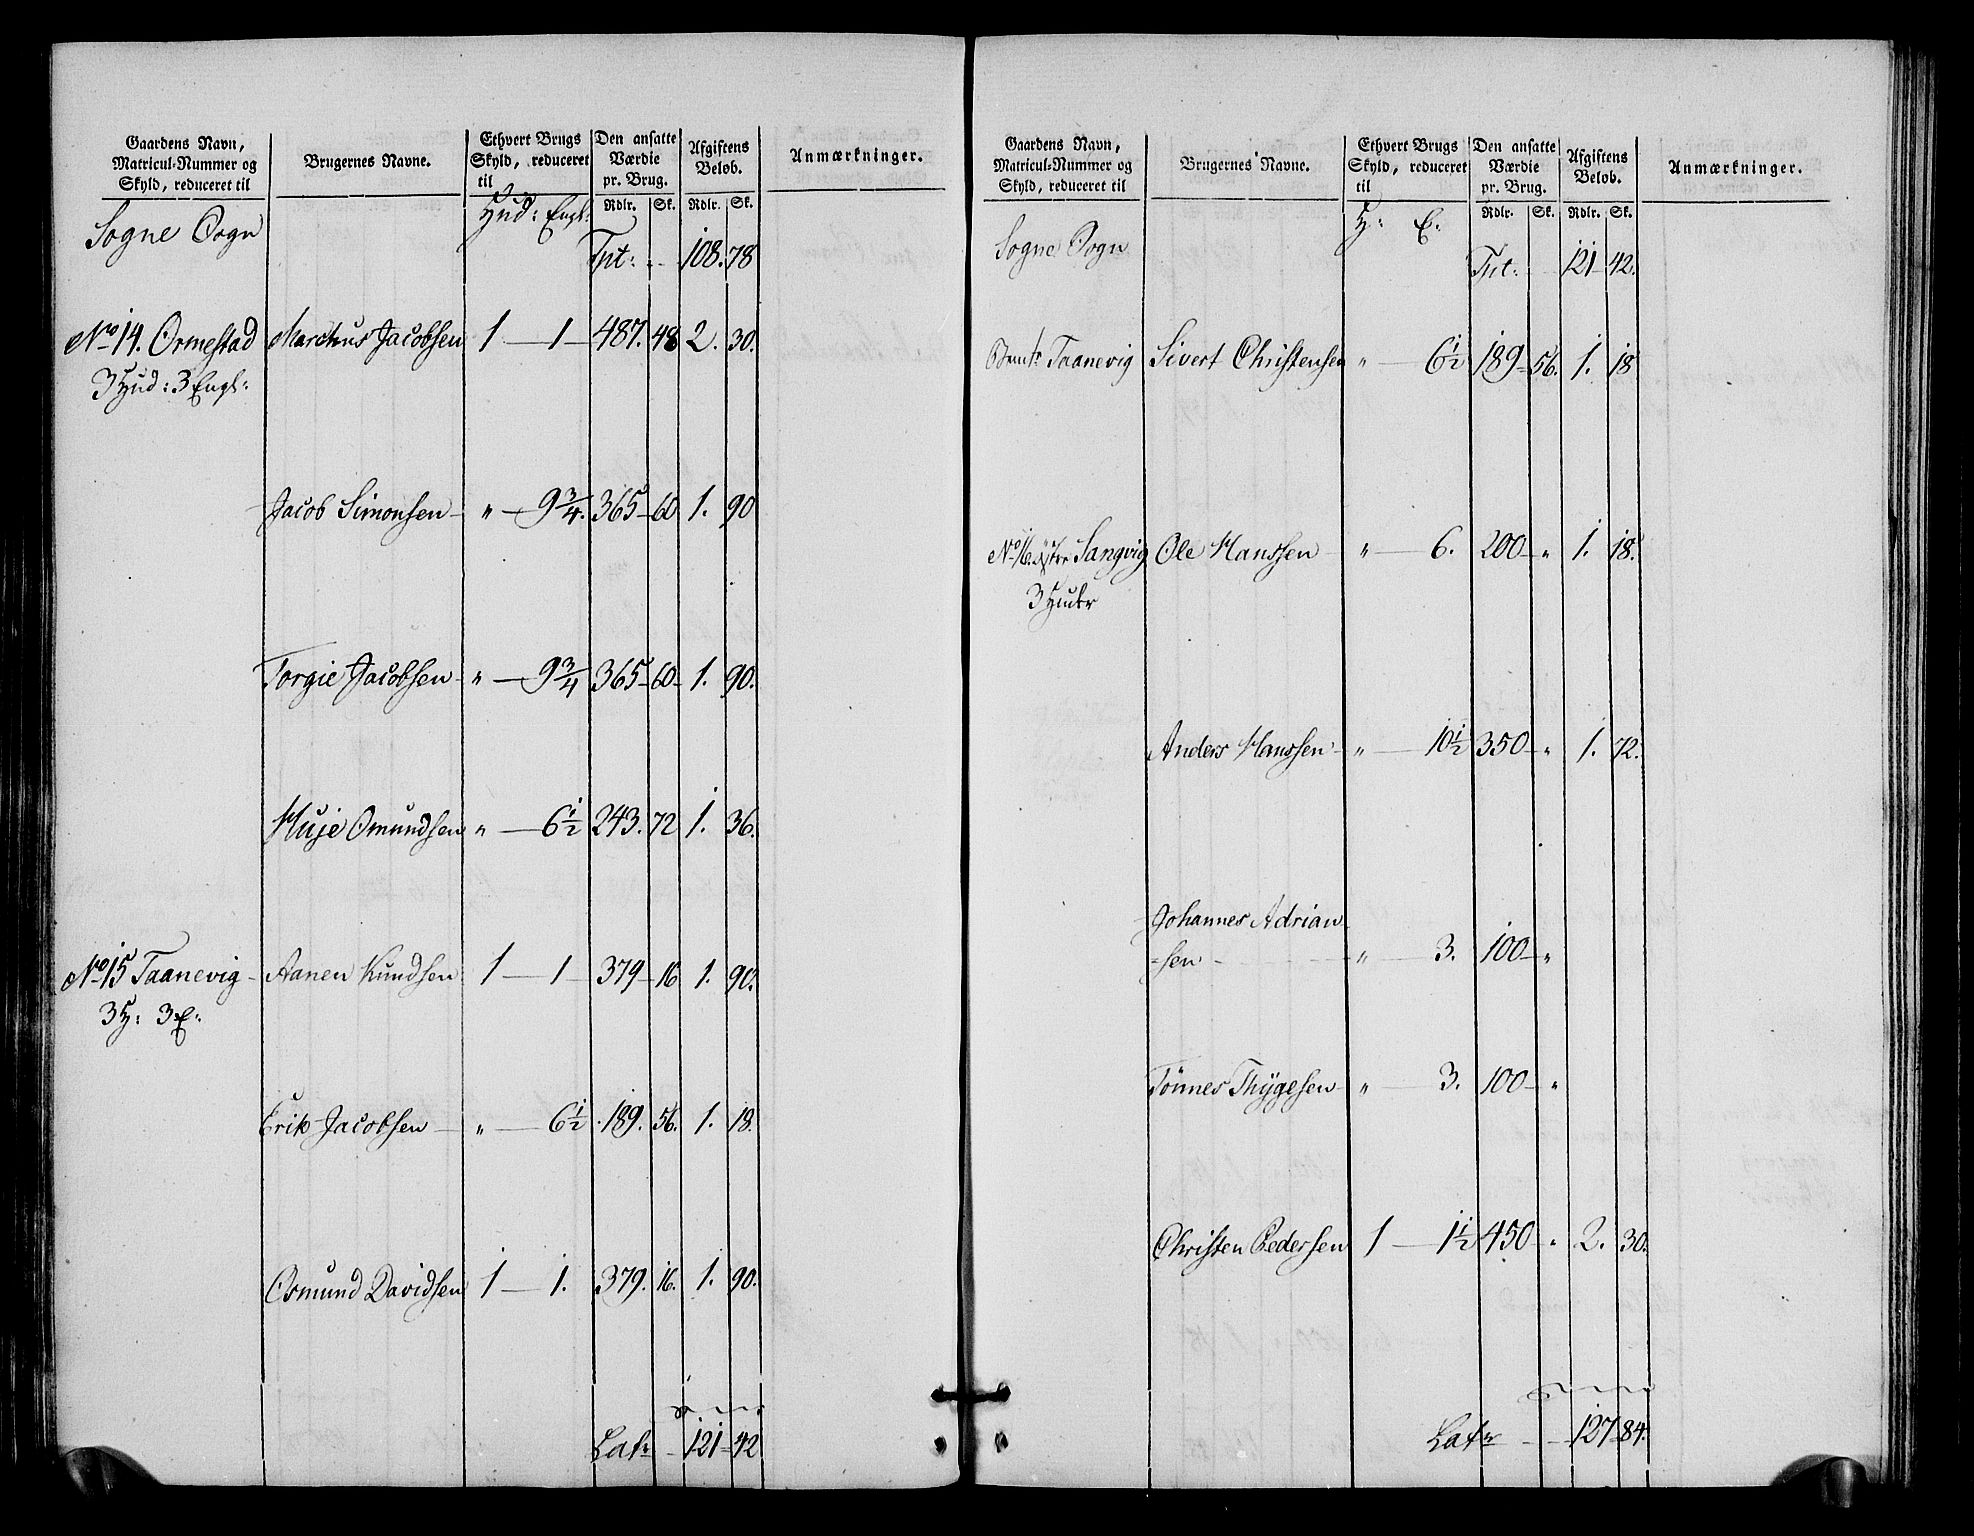 Gaardens Navn, Matricul-Nummer og Skyld, reduceret til | Brugernes Navne. | Ethvert Brugs Skyld, reduceret til | Den ansatte Værdie pr. Brug. | Afgiftens Beløb. | Anmærkninger.
Rdlr. | Sk. | Rdlr. | Sk.
Hud: Engl:
Sogne Sogn
Tpt: 108. 78
No 14. Ormestad Marchus Jacobsen 1 — 1 — 487. 48 2. 30.
3 Hud: 3 Engl:
Jacob Simonsen — " — 9 3/4. 365 — 60 1. 90
Torgie Jacobsen — " — 9 3/4 365 — 60 — 1. 90.
Huje Omundsen " — 6 1/2 243. 72 1. 36.
No 15 Taanevig — Aanen Knudsen 1 — 1 — 379 — 16 1. 90.
3 H: 3 E:
Erik Jacobsen — " — 6 1/2 189. 56. 1. 18.
Osmund Davidsen 1 — 1. 379. 16. 1. 90.
Latr 121 — 42
Gaardens Navn, Matricul-Nummer og Skyld, reduceret til | Brugernes Navne. | Ethvert Brugs Skyld, reduceret til | Den ansatte Værdie pr. Brug. | Afgiftens Beløb. | Anmærkninger.
Rdlr. | Sk. | Rdlr. | Sk.
H: E:
Sogne Sogn
Tpt: 121 — 42.
Taanevig Sivert Christensen " — 6 1/2 189 — 56. 1. 18
No 16. østre Sangvig Ole Hanssen — " — 6. 200 — " 1. 18.
3 Huder
Anders Hanssen — " — 10 1/2 350 — " 1. 72.
Johannes Adrian
-sen — " — 3. 100 — "
Tönnes Thÿgesen " — 3. 100 — "
Christen Pedersen 1 — 1 1/2 450 — " 2. 30.
Latr 127 — 84.